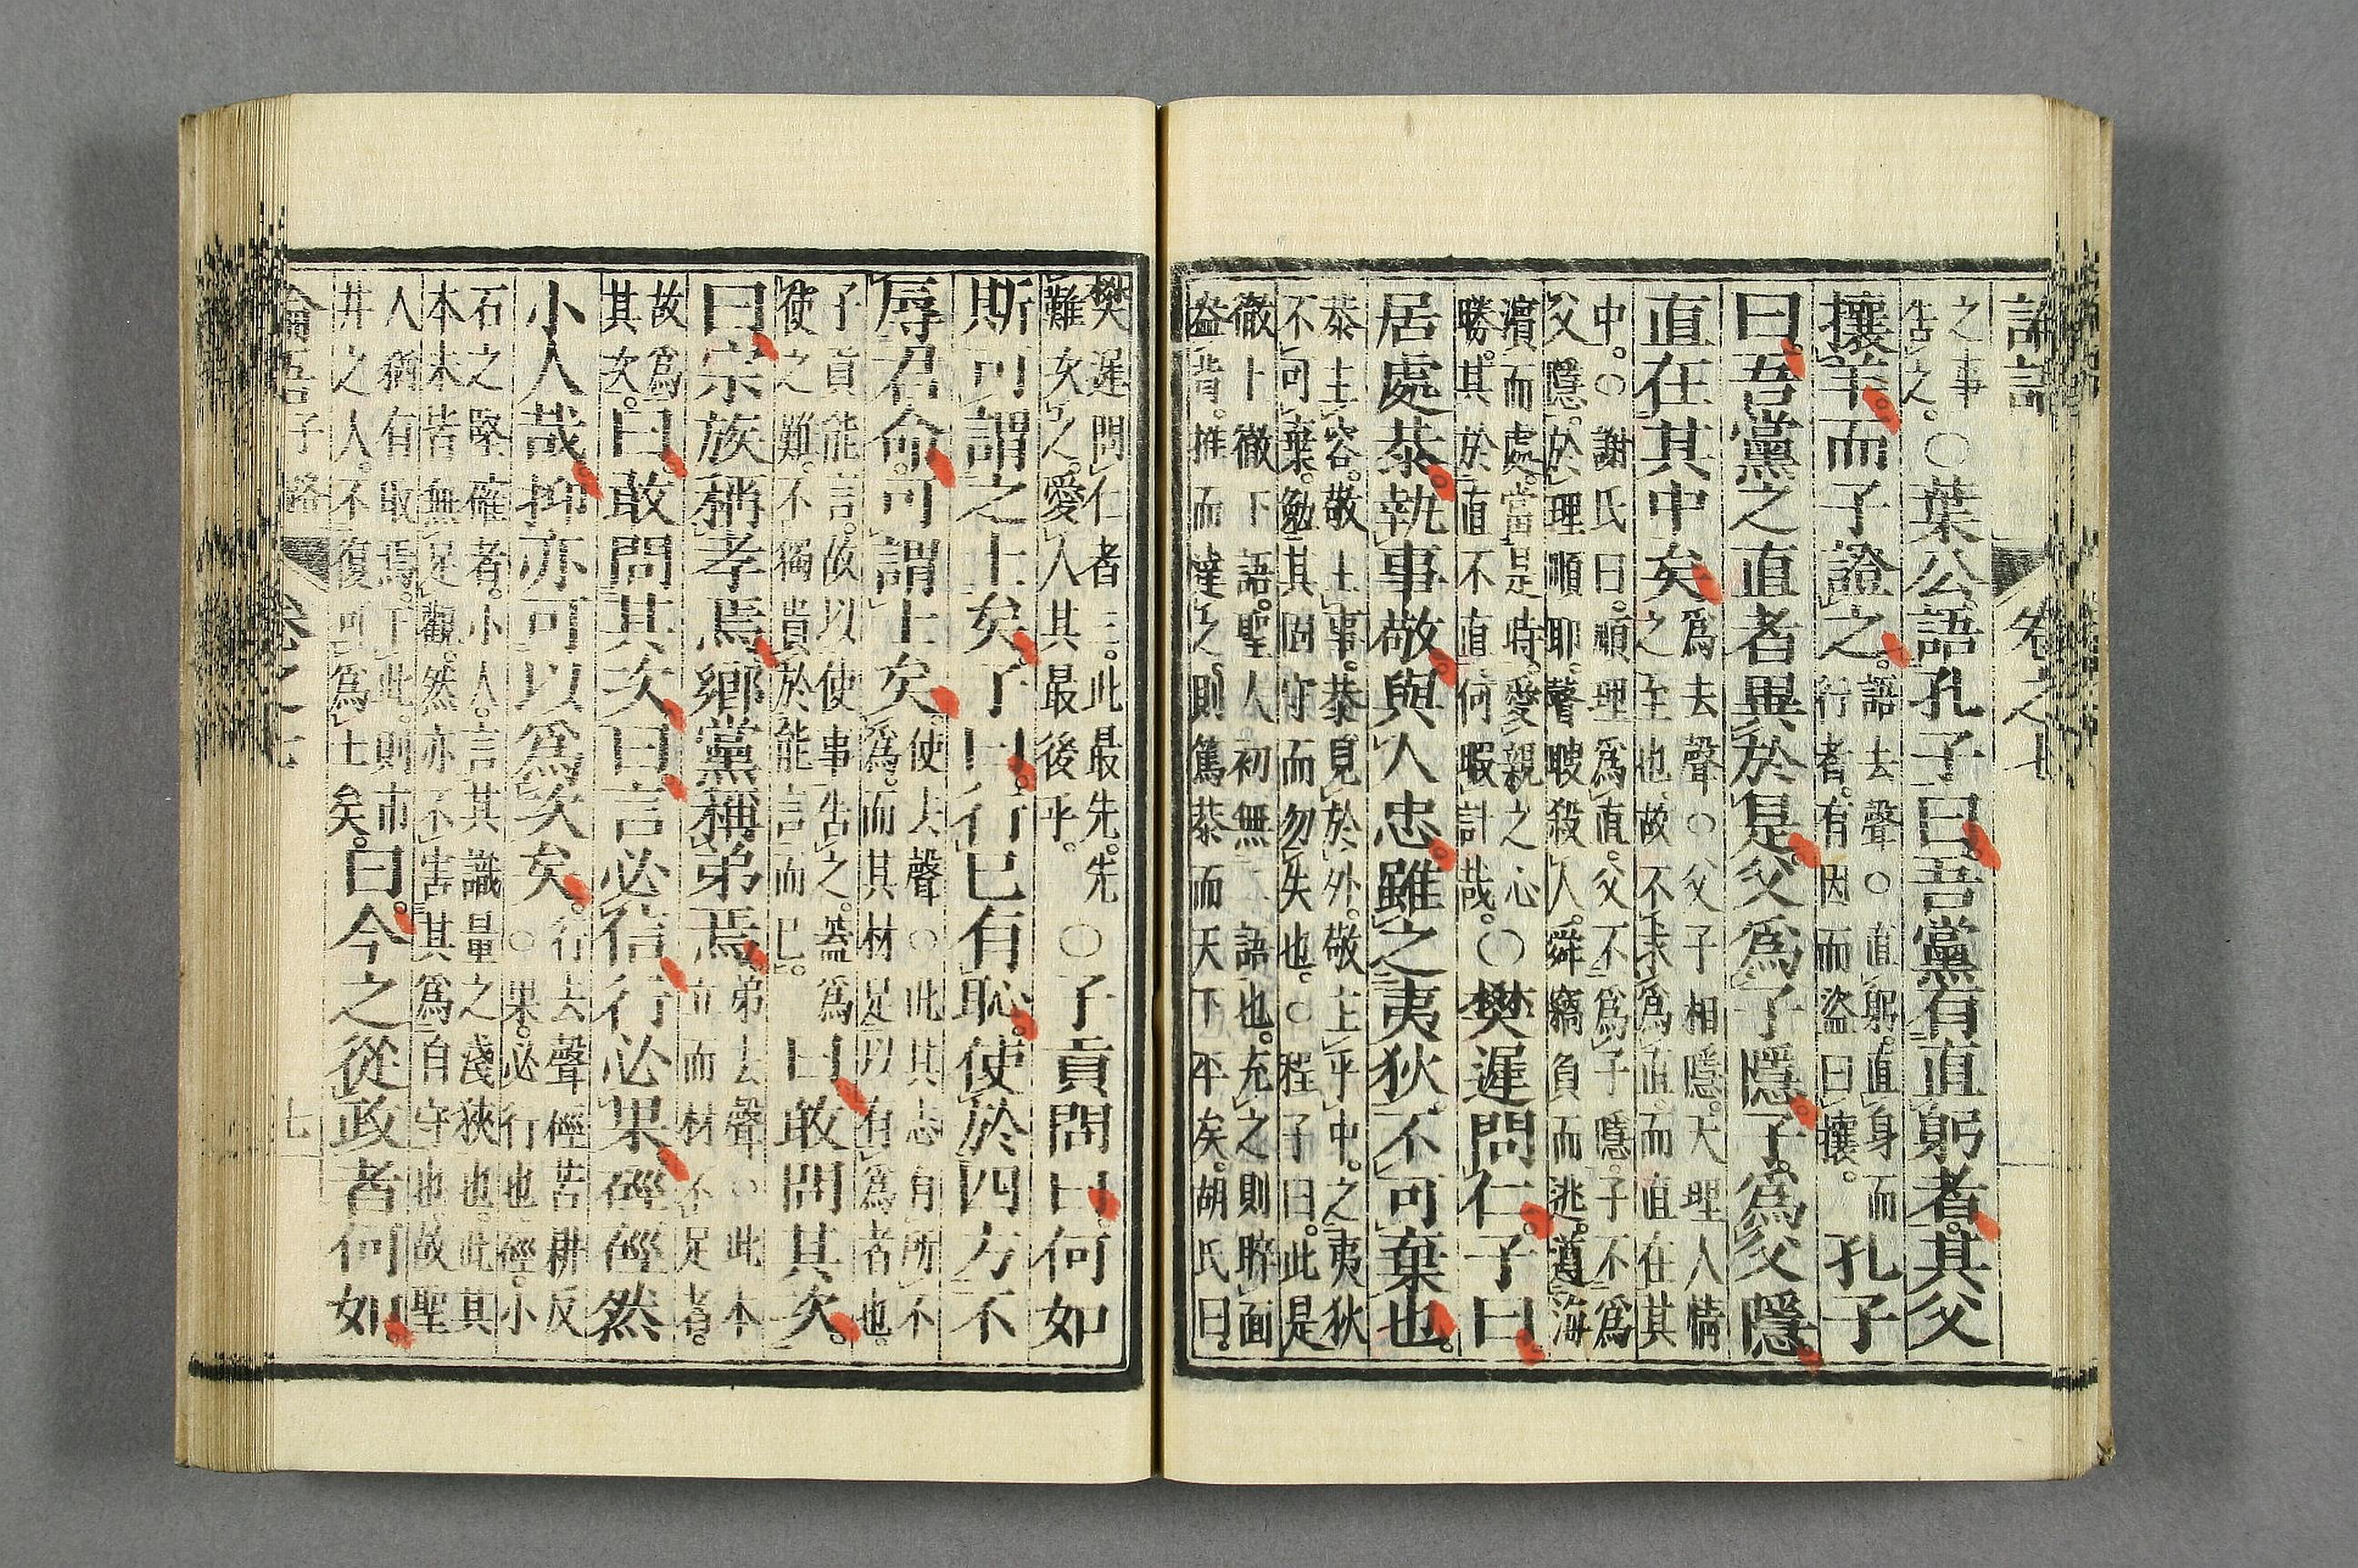 論語 卷之七
之事告之。○葉公語孔子曰。吾黨有直躬者。其父
攘羊而子證之。語去聲○直躬。直身而行者。有因而盜曰攘。孔子
曰。吾黨之直者異於是。父爲子隱。子爲父隱。
直在其中矣。爲去聲○父子相隱。天理人情之至也。故不求爲直。而直在其
中。○謝氏曰。順理爲直。父不爲子隱。子不爲父隱。於理順耶。瞽瞍殺人。舜竊負而逃。遵海
濱而處。當是時。愛親之心勝。其於直不直。何暇計哉。○樊遲問仁。子曰。
居處恭。執事敬。與人忠。雖之夷狄。不可棄也。
恭主容。敬主事。恭見於外。敬主乎中。之夷狄不可棄。勉其固守而勿失也。○程子曰。此是
徹上徹下語。聖人初無二語也。充之則睟面盎背。推而達之。則篤恭而天下平矣。胡氏曰。
樊遲問仁者三。此最先。先難次之。愛人其最後乎。○子貢問曰。何如
斯可謂之士矣。子曰。行已有恥。使於四方不
辱君命。可謂士矣。使去聲○此其志有所不爲。而其材足以有爲者也。
子貢能言。故以使事告之。蓋爲使之難。不獨貴於能言而已。曰。敢問其次。
曰。宗族稱孝焉。鄉黨稱弟焉。弟去聲○此本立而材不足者。
故爲其次。曰。敢問其次。曰。言必信。行必果。硜硜然
小人哉。抑亦可以爲次矣。行去聲硜苦耕反○果。必行也。硜。小
石之堅確者。小人。言其識量之淺狹也。此其本末皆無足觀。然亦不害其爲自守也。故聖
人猶有取焉。下此。則市井之人。不復可爲士矣。曰。今之從政者何如。
論語子路 卷之七